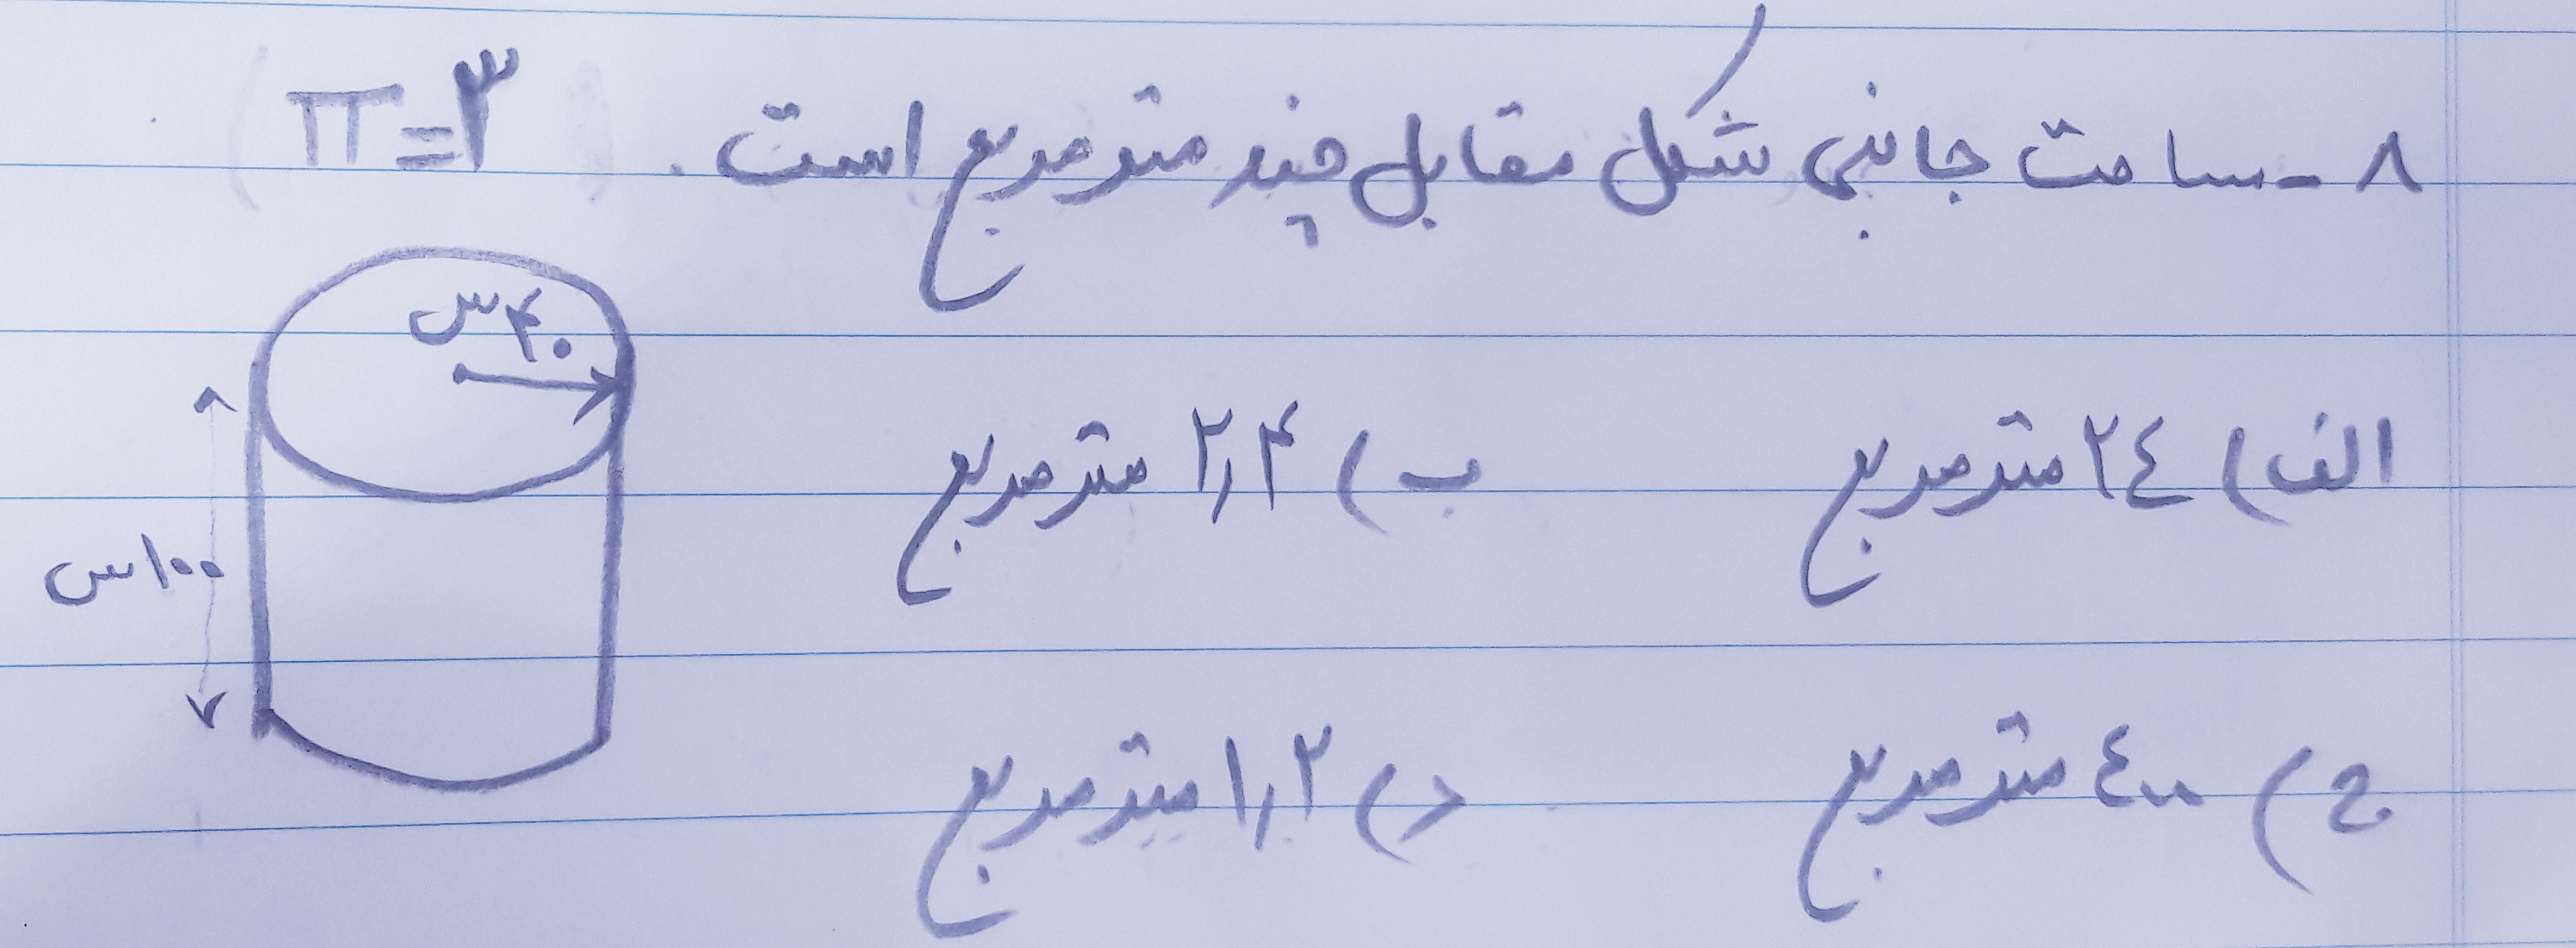 ۸ - ساحت جانبی شکل مقابل چند مترمربع است. (π=۳)
۴۰س
۱۰۰س
الف) ٢٤ مترمربع ب) ۲٫۴ مترمربع
ج) ٤٠٠ مترمربع د) ۱٫۲ مترمربع